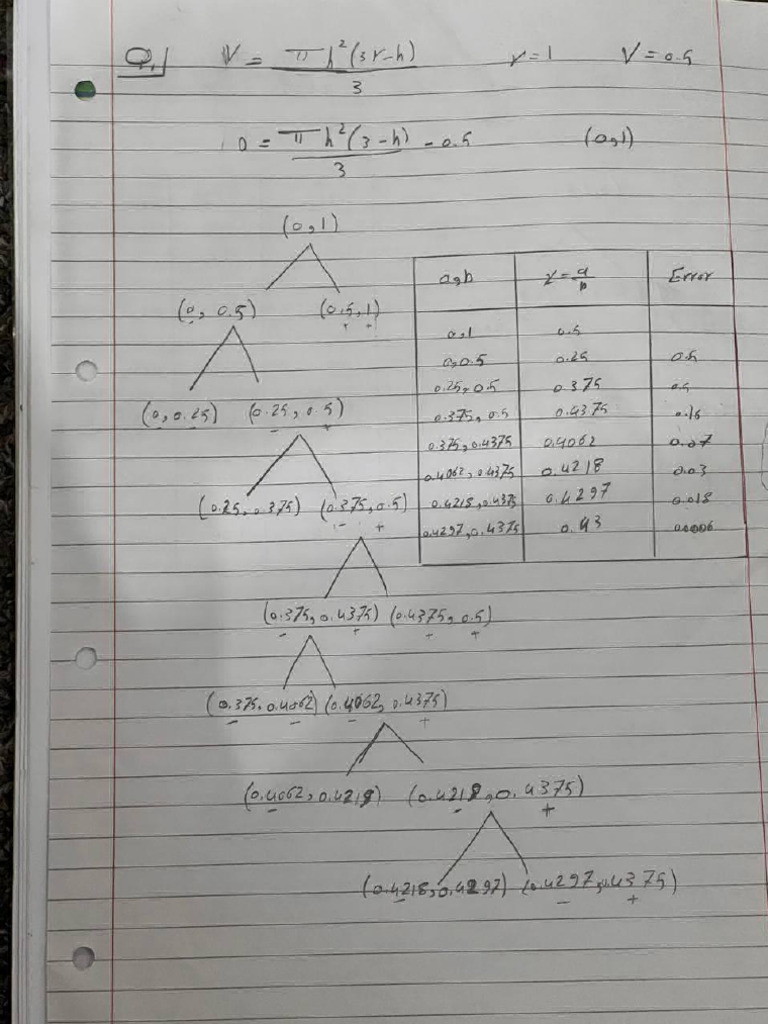 Q.1 V = πh²(3r-h) / 3 r=1 V=0.5
0 = πh²(3-h) / 3 - 0.5 (0,1)
(0,1)
a,b Error
(0, 0.5) (0.5,1)
- + +
0,1 0.5
0,0.5 0.25 0.5
0.25,0.5 0.375
(0,0.25) (0.25,0.5)
- +
0.375,0.5 0.4375
0.375,0.4375 0.4062 0.07
0.4062,0.4375 0.4218 0.03
(0.25,0.375) (0.375,0.5)
- +
0.4218,0.4375 0.4297 0.018
0.4297,0.4375 0.43 0.0006
(0.375,0.4375) (0.4375,0.5)
- + + +
(0.375,0.4062) (0.4062,0.4375)
- - - +
(0.4062,0.4218) (0.4218,0.4375)
- - +
(0.4218,0.4297) (0.4297,0.4375)
- - +